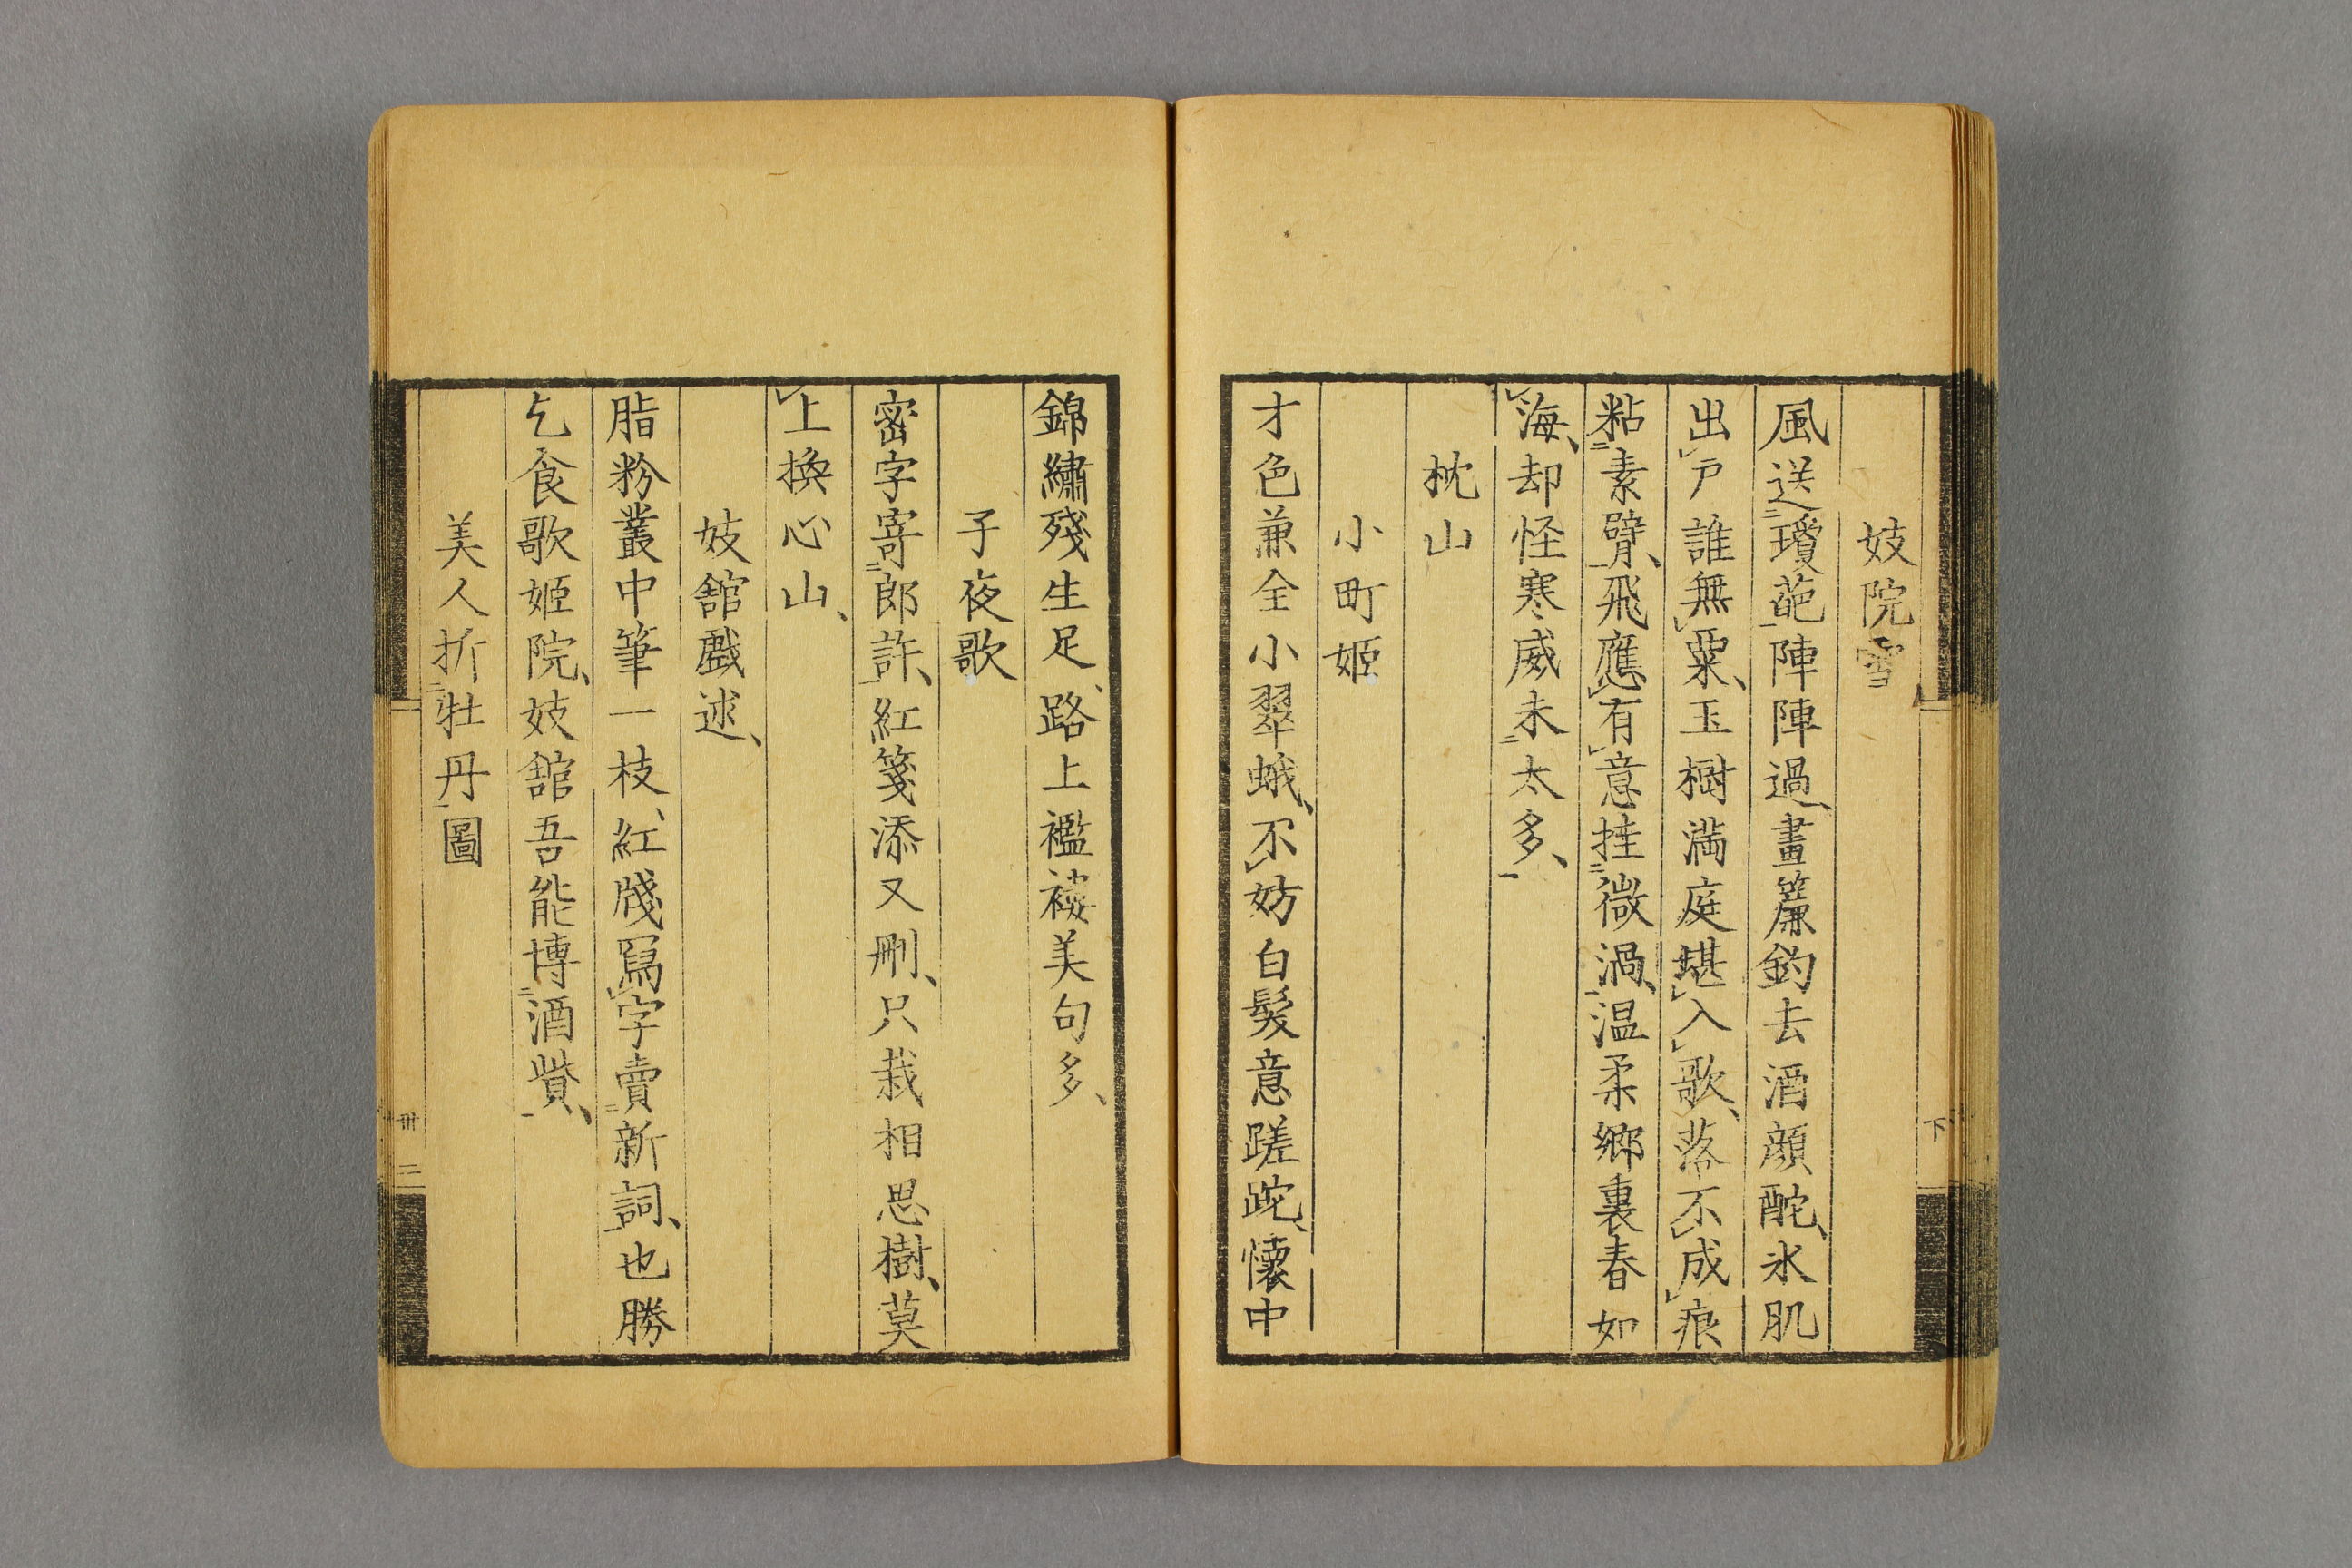 妓院雪
風送瓊葩陣陣過、畫簾鈎去酒顔酡、氷肌
出戸誰無粟、玉樹満庭堪入歌、落不成痕
粘素臂、飛應有意挂微渦、温柔郷裏春如
海、却怪寒威未太多、
枕山
小町姫
才色兼全小翠蛾、不妨白髮意蹉跎、懷中
下
錦繡殘生足、路上襤褸美句多、
子夜歌
密字寄郎許、紅箋添又刪、只栽相思樹、莫
上換心山、
妓舘戲述、
脂粉叢中筆一枝、紅牋冩字賣新詞、也勝
乞食歌姬院、妓舘吾能博酒貲、
美人折牡丹圖
卅二